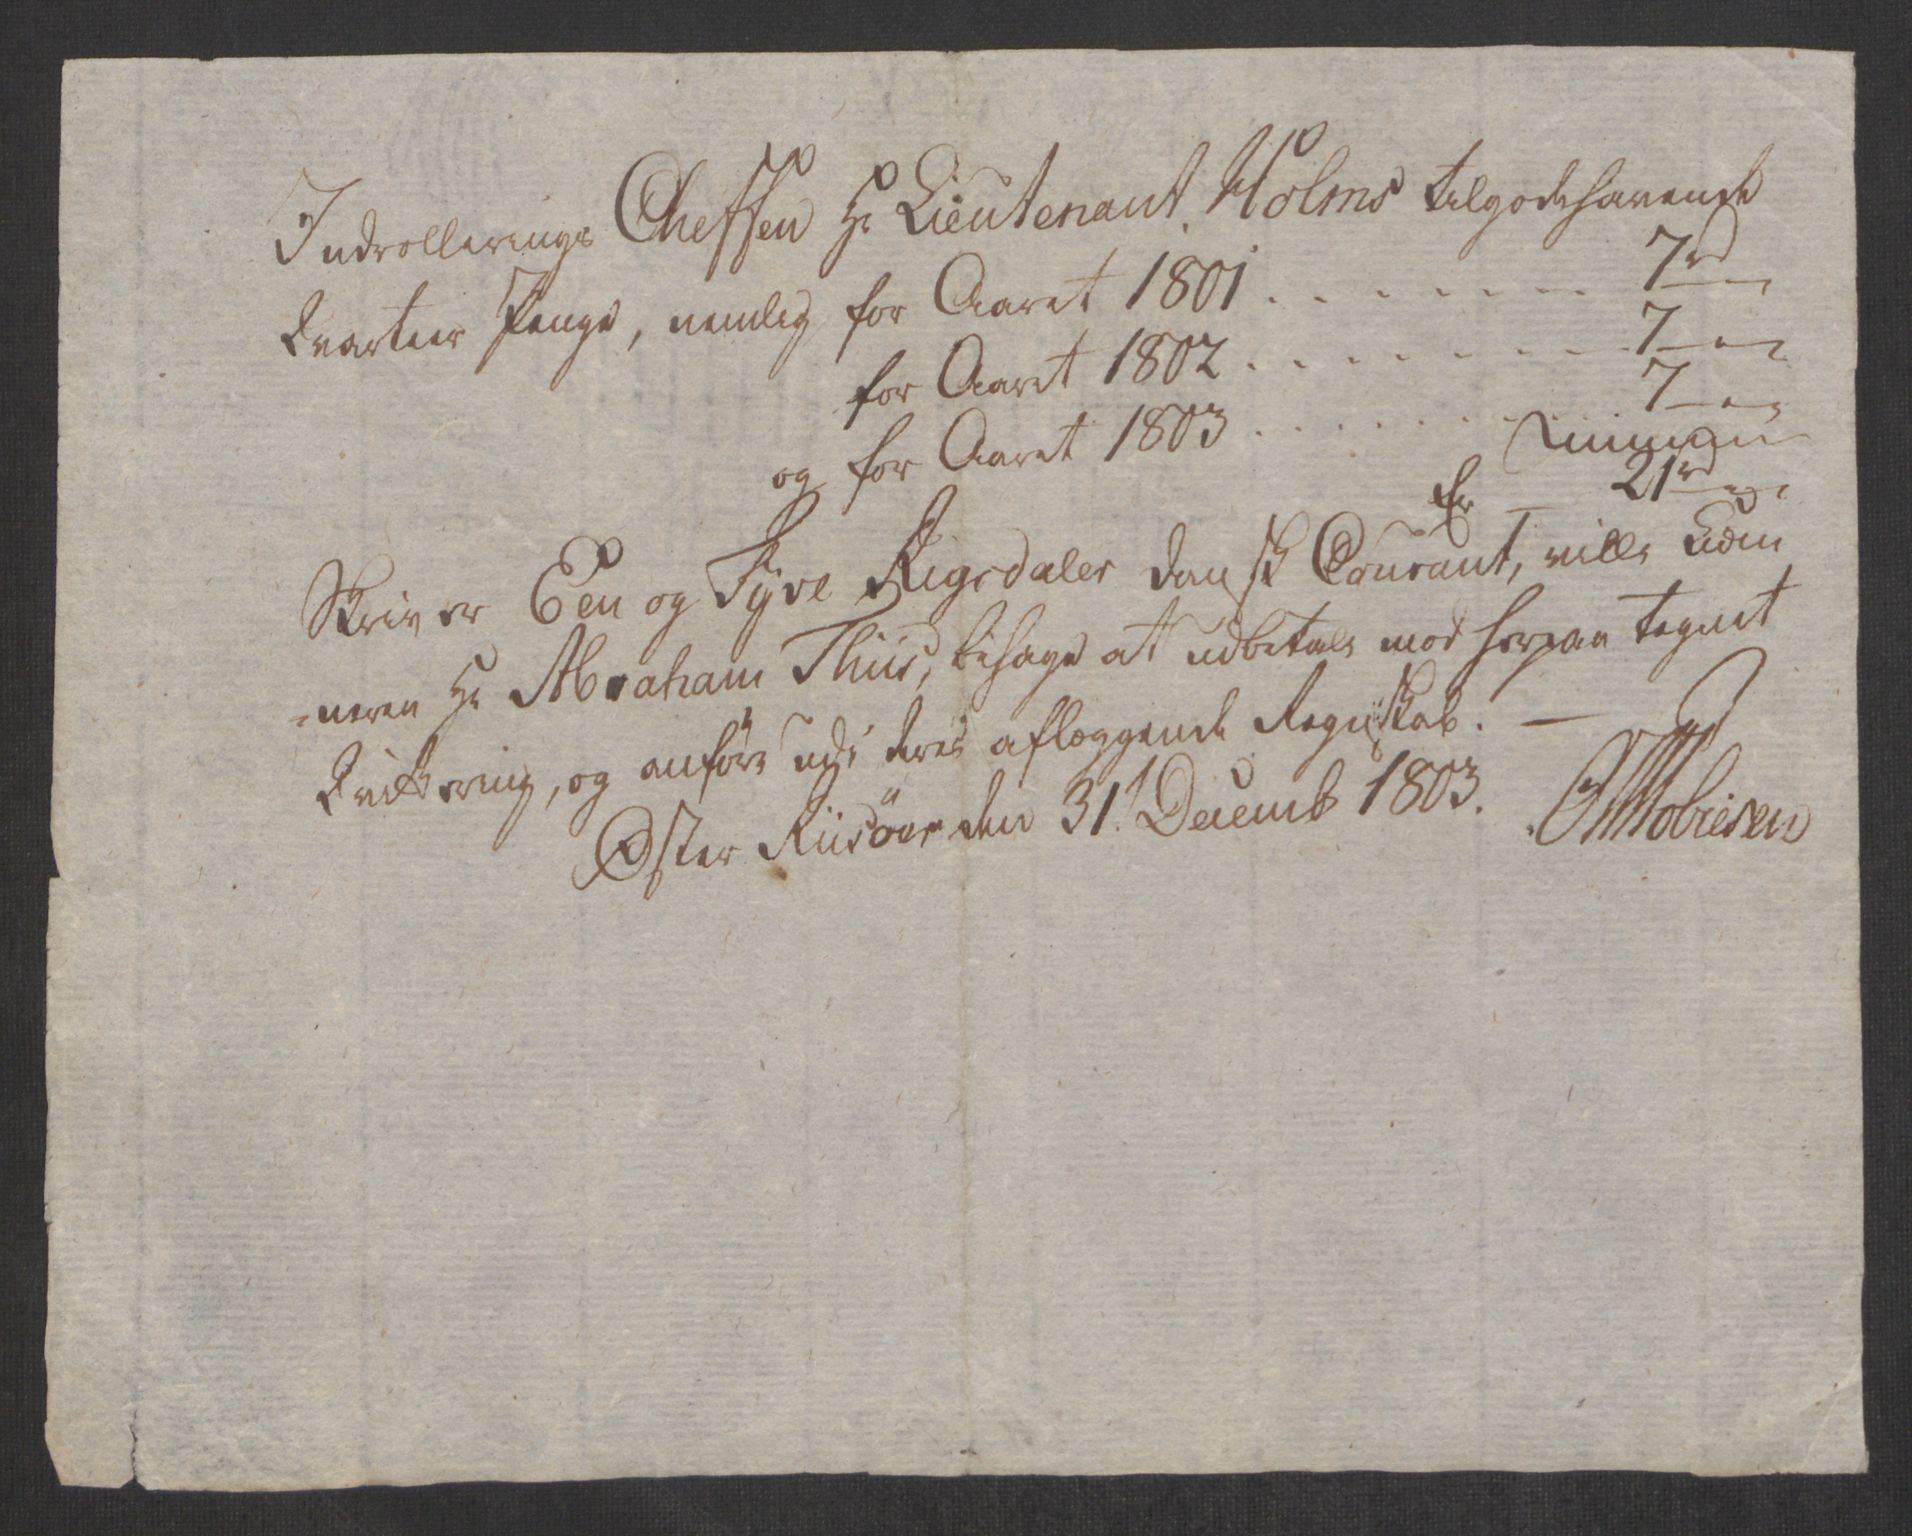 Indrollerings Cheffen Hr Lieutenant Holms tilgodehavende
Qvarteer Penge, nemlig for Aaret 1801 . . . . . . . . 7rd
for Aaret 1802 . . . . . . . . 7
og for Aaret 1803 . . . . . . . . 7
Er 21rd
Skriver Een og Tyve Rigsdaler dansk Courant, ville Kiem
-neren Hr Abraham Thiis, behage at udbetale mod herpaa tegnet
Qvittering, og anföre udi deres aflæggende Regnskab. —
Øster Riisöer den 31t Decemb 1803.